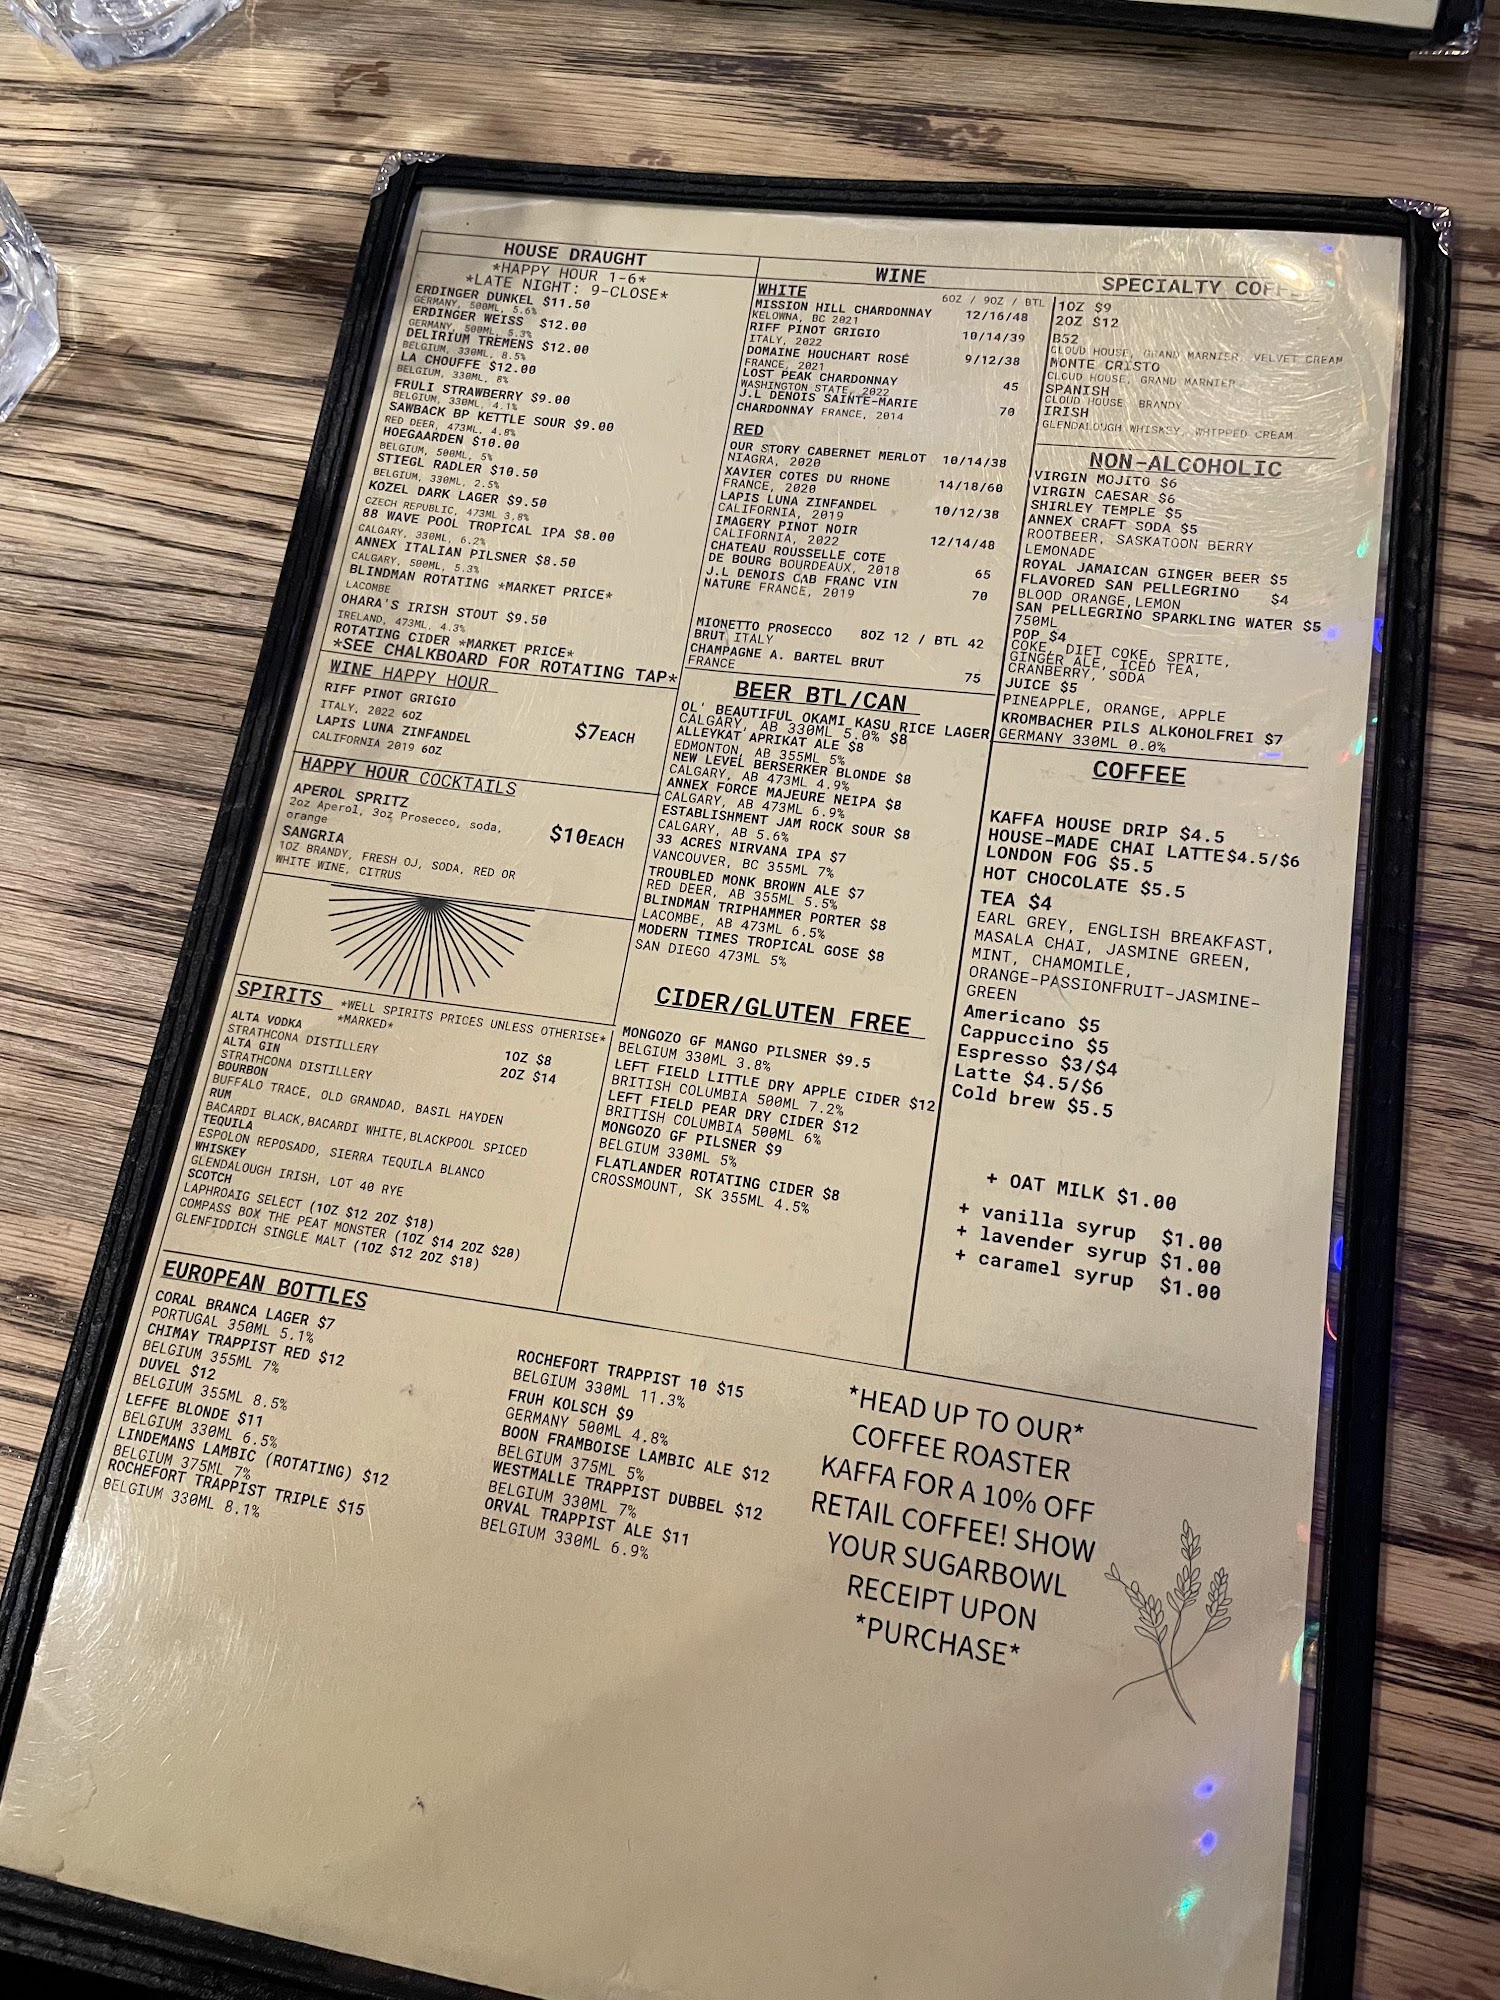 HOUSE DRAUGHT
*HAPPY HOUR 1-6*
*LATE NIGHT: 9-CLOSE*
ERDINGER DUNKEL $11.50
GERMANY, 500ML, 5.6%
ERDINGER WEISS $12.00
GERMANY, 500ML, 5.3%
DELIRIUM TREMENS $12.00
BELGIUM, 330ML, 8.5%
LA CHOUFFE $12.00
BELGIUM, 330ML, 8%
FRULI STRAWBERRY $9.00
BELGIUM, 330ML, 4.1%
SAWBACK BP KETTLE SOUR $9.00
RED DEER, 473ML, 4.8%
HOEGAARDEN $10.00
BELGIUM, 500ML, 5%
STIEGL RADLER $10.50
BELGIUM, 330ML, 2.5%
KOZEL DARK LAGER $9.50
CZECH REPUBLIC, 473ML 3.8%
88 WAVE POOL TROPICAL IPA $8.00
CALGARY, 330ML, 6.2%
ANNEX ITALIAN PILSNER $8.50
CALGARY, 500ML, 5.3%
BLINDMAN ROTATING *MARKET PRICE*
LACOMBE
OHARA'S IRISH STOUT $9.50
IRELAND, 473ML, 4.3%
ROTATING CIDER *MARKET PRICE*
*SEE CHALKBOARD FOR ROTATING TAP*
WINE HAPPY HOUR
RIFF PINOT GRIGIO
ITALY, 2022 6OZ
LAPIS LUNA ZINFANDEL
CALIFORNIA 2019 6OZ
$7EACH
HAPPY HOUR COCKTAILS
APEROL SPRITZ
2oz Aperol, 3oz Prosecco, soda,
orange
SANGRIA
1OZ BRANDY, FRESH OJ, SODA, RED OR
WHITE WINE, CITRUS
$10EACH
SPIRITS *WELL SPIRITS PRICES UNLESS OTHERISE*
*MARKED*
ALTA VODKA
STRATHCONA DISTILLERY
ALTA GIN
STRATHCONA DISTILLERY
1OZ $8
2OZ $14
BOURBON
BUFFALO TRACE, OLD GRANDAD, BASIL HAYDEN
RUM
BACARDI BLACK,BACARDI WHITE,BLACKPOOL SPICED
TEQUILA
ESPOLON REPOSADO, SIERRA TEQUILA BLANCO
WHISKEY
GLENDALOUGH IRISH, LOT 40 RYE
SCOTCH
LAPHROAIG SELECT (1OZ $12 2OZ $18)
COMPASS BOX THE PEAT MONSTER (1OZ $14 2OZ $20)
GLENFIDDICH SINGLE MALT (1OZ $12 2OZ $18)
WINE
WHITE 6OZ / 9OZ / BTL
MISSION HILL CHARDONNAY 12/16/48
KELOWNA, BC 2021
RIFF PINOT GRIGIO 10/14/39
ITALY, 2022
DOMAINE HOUCHART ROSÉ 9/12/38
FRANCE, 2021
LOST PEAK CHARDONNAY 45
WASHINGTON STATE, 2022
J.L DENOIS SAINTE-MARIE 70
CHARDONNAY FRANCE, 2014
RED
OUR STORY CABERNET MERLOT 10/14/38
NIAGRA, 2020
XAVIER COTES DU RHONE 14/18/60
FRANCE, 2020
LAPIS LUNA ZINFANDEL 10/12/38
CALIFORNIA, 2019
IMAGERY PINOT NOIR 12/14/48
CALIFORNIA, 2022
CHATEAU ROUSSELLE COTE
DE BOURG BOURDEAUX, 2018 65
J.L DENOIS CAB FRANC VIN
NATURE FRANCE, 2019 70
MIONETTO PROSECCO 8OZ 12 / BTL 42
BRUT ITALY
CHAMPAGNE A. BARTEL BRUT
FRANCE 75
BEER BTL/CAN
OL' BEAUTIFUL OKAMI KASU RICE LAGER
CALGARY, AB 330ML 5.0% $8
ALLEYKAT APRIKAT ALE $8
EDMONTON, AB 355ML 5%
NEW LEVEL BERSERKER BLONDE $8
CALGARY, AB 473ML 4.9%
ANNEX FORCE MAJEURE NEIPA $8
CALGARY, AB 473ML 6.9%
ESTABLISHMENT JAM ROCK SOUR $8
CALGARY, AB 5.6%
33 ACRES NIRVANA IPA $7
VANCOUVER, BC 355ML 7%
TROUBLED MONK BROWN ALE $7
RED DEER, AB 355ML 5.5%
BLINDMAN TRIPHAMMER PORTER $8
LACOMBE, AB 473ML 6.5%
MODERN TIMES TROPICAL GOSE $8
SAN DIEGO 473ML 5%
CIDER/GLUTEN FREE
MONGOZO GF MANGO PILSNER $9.5
BELGIUM 330ML 3.8%
LEFT FIELD LITTLE DRY APPLE CIDER $12
BRITISH COLUMBIA 500ML 7.2%
LEFT FIELD PEAR DRY CIDER $12
BRITISH COLUMBIA 500ML 6%
MONGOZO GF PILSNER $9
BELGIUM 330ML 5%
FLATLANDER ROTATING CIDER $8
CROSSMOUNT, SK 355ML 4.5%
SPECIALTY
1OZ $9
2OZ $12
B52
CLOUD HOUSE, GRAND MARNIER, VELVET CREAM
MONTE CRISTO
CLOUD HOUSE, GRAND MARNIER
SPANISH
CLOUD HOUSE, BRANDY
IRISH
GLENDALOUGH WHISKEY, WHIPPED CREAM
NON-ALCOHOLIC
VIRGIN MOJITO $6
VIRGIN CAESAR $6
SHIRLEY TEMPLE $5
ANNEX CRAFT SODA $5
ROOTBEER, SASKATOON BERRY
LEMONADE
ROYAL JAMAICAN GINGER BEER $5
FLAVORED SAN PELLEGRINO $4
BLOOD ORANGE,LEMON
SAN PELLEGRINO SPARKLING WATER $5
750ML
POP $4
COKE, DIET COKE, SPRITE,
GINGER ALE, ICED TEA,
CRANBERRY, SODA
JUICE $5
PINEAPPLE, ORANGE, APPLE
KROMBACHER PILS ALKOHOLFREI $7
GERMANY 330ML 0.0%
COFFEE
KAFFA HOUSE DRIP $4.5
HOUSE-MADE CHAI LATTE$4.5/$6
LONDON FOG $5.5
HOT CHOCOLATE $5.5
TEA $4
EARL GREY, ENGLISH BREAKFAST,
MASALA CHAI, JASMINE GREEN,
MINT, CHAMOMILE,
ORANGE-PASSIONFRUIT-JASMINE-
GREEN
Americano $5
Cappuccino $5
Espresso $3/$4
Latte $4.5/$6
Cold brew $5.5
+ OAT MILK $1.00
+ vanilla syrup $1.00
+ lavender syrup $1.00
+ caramel syrup $1.00
EUROPEAN BOTTLES
CORAL BRANCA LAGER $7
PORTUGAL 350ML 5.1%
CHIMAY TRAPPIST RED $12
BELGIUM 355ML 7%
DUVEL $12
BELGIUM 355ML 8.5%
LEFFE BLONDE $11
BELGIUM 330ML 6.5%
LINDEMANS LAMBIC (ROTATING) $12
BELGIUM 375ML 7%
ROCHEFORT TRAPPIST TRIPLE $15
BELGIUM 330ML 8.1%
ROCHEFORT TRAPPIST 10 $15
BELGIUM 330ML 11.3%
FRUH KOLSCH $9
GERMANY 500ML 4.8%
BOON FRAMBOISE LAMBIC ALE $12
BELGIUM 375ML 5%
WESTMALLE TRAPPIST DUBBEL $12
BELGIUM 330ML 7%
ORVAL TRAPPIST ALE $11
BELGIUM 330ML 6.9%
*HEAD UP TO OUR*
COFFEE ROASTER
KAFFA FOR A 10% OFF
RETAIL COFFEE! SHOW
YOUR SUGARBOWL
RECEIPT UPON
*PURCHASE*